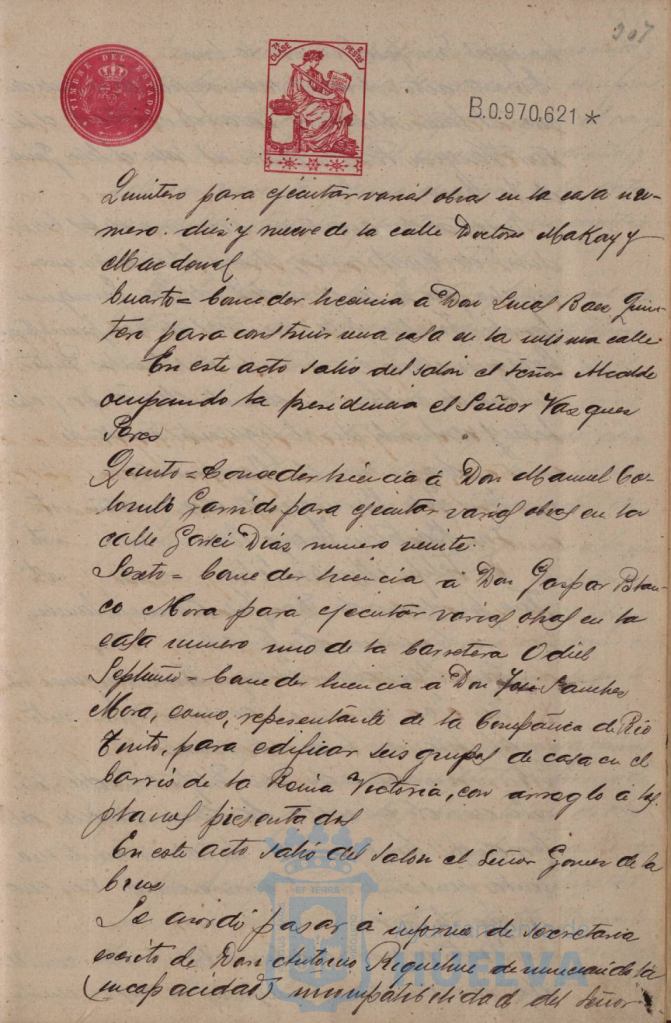 307
TIMBRE DEL ESTADO
7ª CLASE 8 PESTAS
B.0.970,621 *
Quintero para ejecutar varias obras en la casa nu-
mero diez y nueve de la calle Doctores Makay y
Macdonal
Cuarto = Conceder licencia á Don Lucas Baez Quin-
tero para construir una casa en la misma calle.
En este acto salió del salon el Señor Alcalde
ocupando la presidencia el Señor Vazquez
Perez
Quinto = Conceder licencia á Don Manuel
Garrido para ejecutar varias obras en la
calle Garci Diaz numero veinte.
Sexto = Conceder licencia á Don Gaspar Blan-
co Mora para ejecutar varias obras en la
casa numero uno de la Carretera Odiel
Septimo = Conceder licencia á Don José Sanchez
Mora, como, representante de la Compañia de Rio
Tinto, para edificar seis grupos de casa en el
barrio de la Reina Victoria, con arreglo á los
planos presentados
En este acto salió del salon el Señor Gomez de la
Cruz
Se acordó pasar á informe de secretaria
escrito de Don Antonio denunciando la
(incapacidad) incompatibilidad del Señor
HUELVA